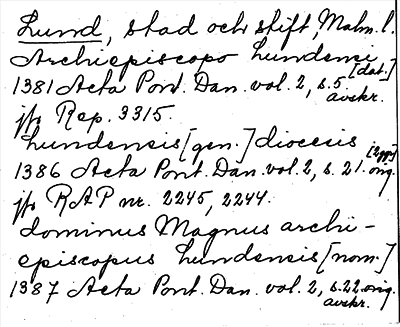 Lund, stad och stift, Malm. l.
Archiepiscopo Lundensi [dat.]
1381 Acta Pont. Dan. vol. 2, s. 5 avskr.
jfr Rep. 3315.
Lundensis [gen.] diocesis [2 ggr]
1386 Acta Pont. Dan. vol. 2, s. 21 orig.
jfr RAP nr. 2245, 2244.
dominus Magnus archi-
episcopus Lundensis [nom.]
1387 Acta Pont. Dan. vol. 2, s. 22 orig. avskr.